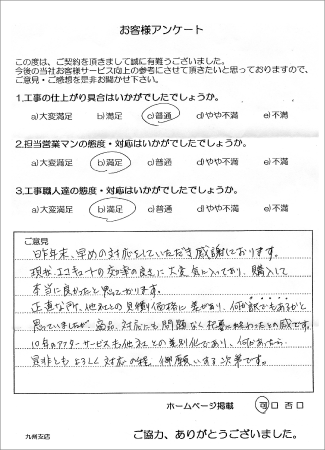 お客様アンケート
この度は、ご契約を頂きまして誠に有難うございました。
今後の当社お客様サービス向上の参考にさせて頂きたいと思っておりますので、
ご意見・ご感想を是非お聞かせ下さい。
1.工事の仕上がり具合はいかがでしたでしょうか。
a)大変満足 b)満足 c)普通 d)やや不満 e)不満
2.担当営業マンの態度・対応はいかがでしたでしょうか。
a)大変満足 b)満足 c)普通 d)やや不満 e)不満
3.工事職人達の態度・対応はいかがでしたでしょうか。
a)大変満足 b)満足 c)普通 d)やや不満 e)不満
ご意見
昨年末、早めの対応をしていただき感謝しております。
現在エコキュートの効率の良さに大変気に入っており、購入して
本当に良かったと思っております。
正直な所、他社との見積り価格に差があり、何か訳でもあるかと
思っていましたが商品、対応にも問題なく杞憂に終わったとの感です。
10年のアフターサービスも他社との差別化であり、何かあったら
是非ともよろしく対応の程、御願いする次第です。
ホームページ掲載 可 口 否 口
九州支店
ご協力、ありがとうございました。